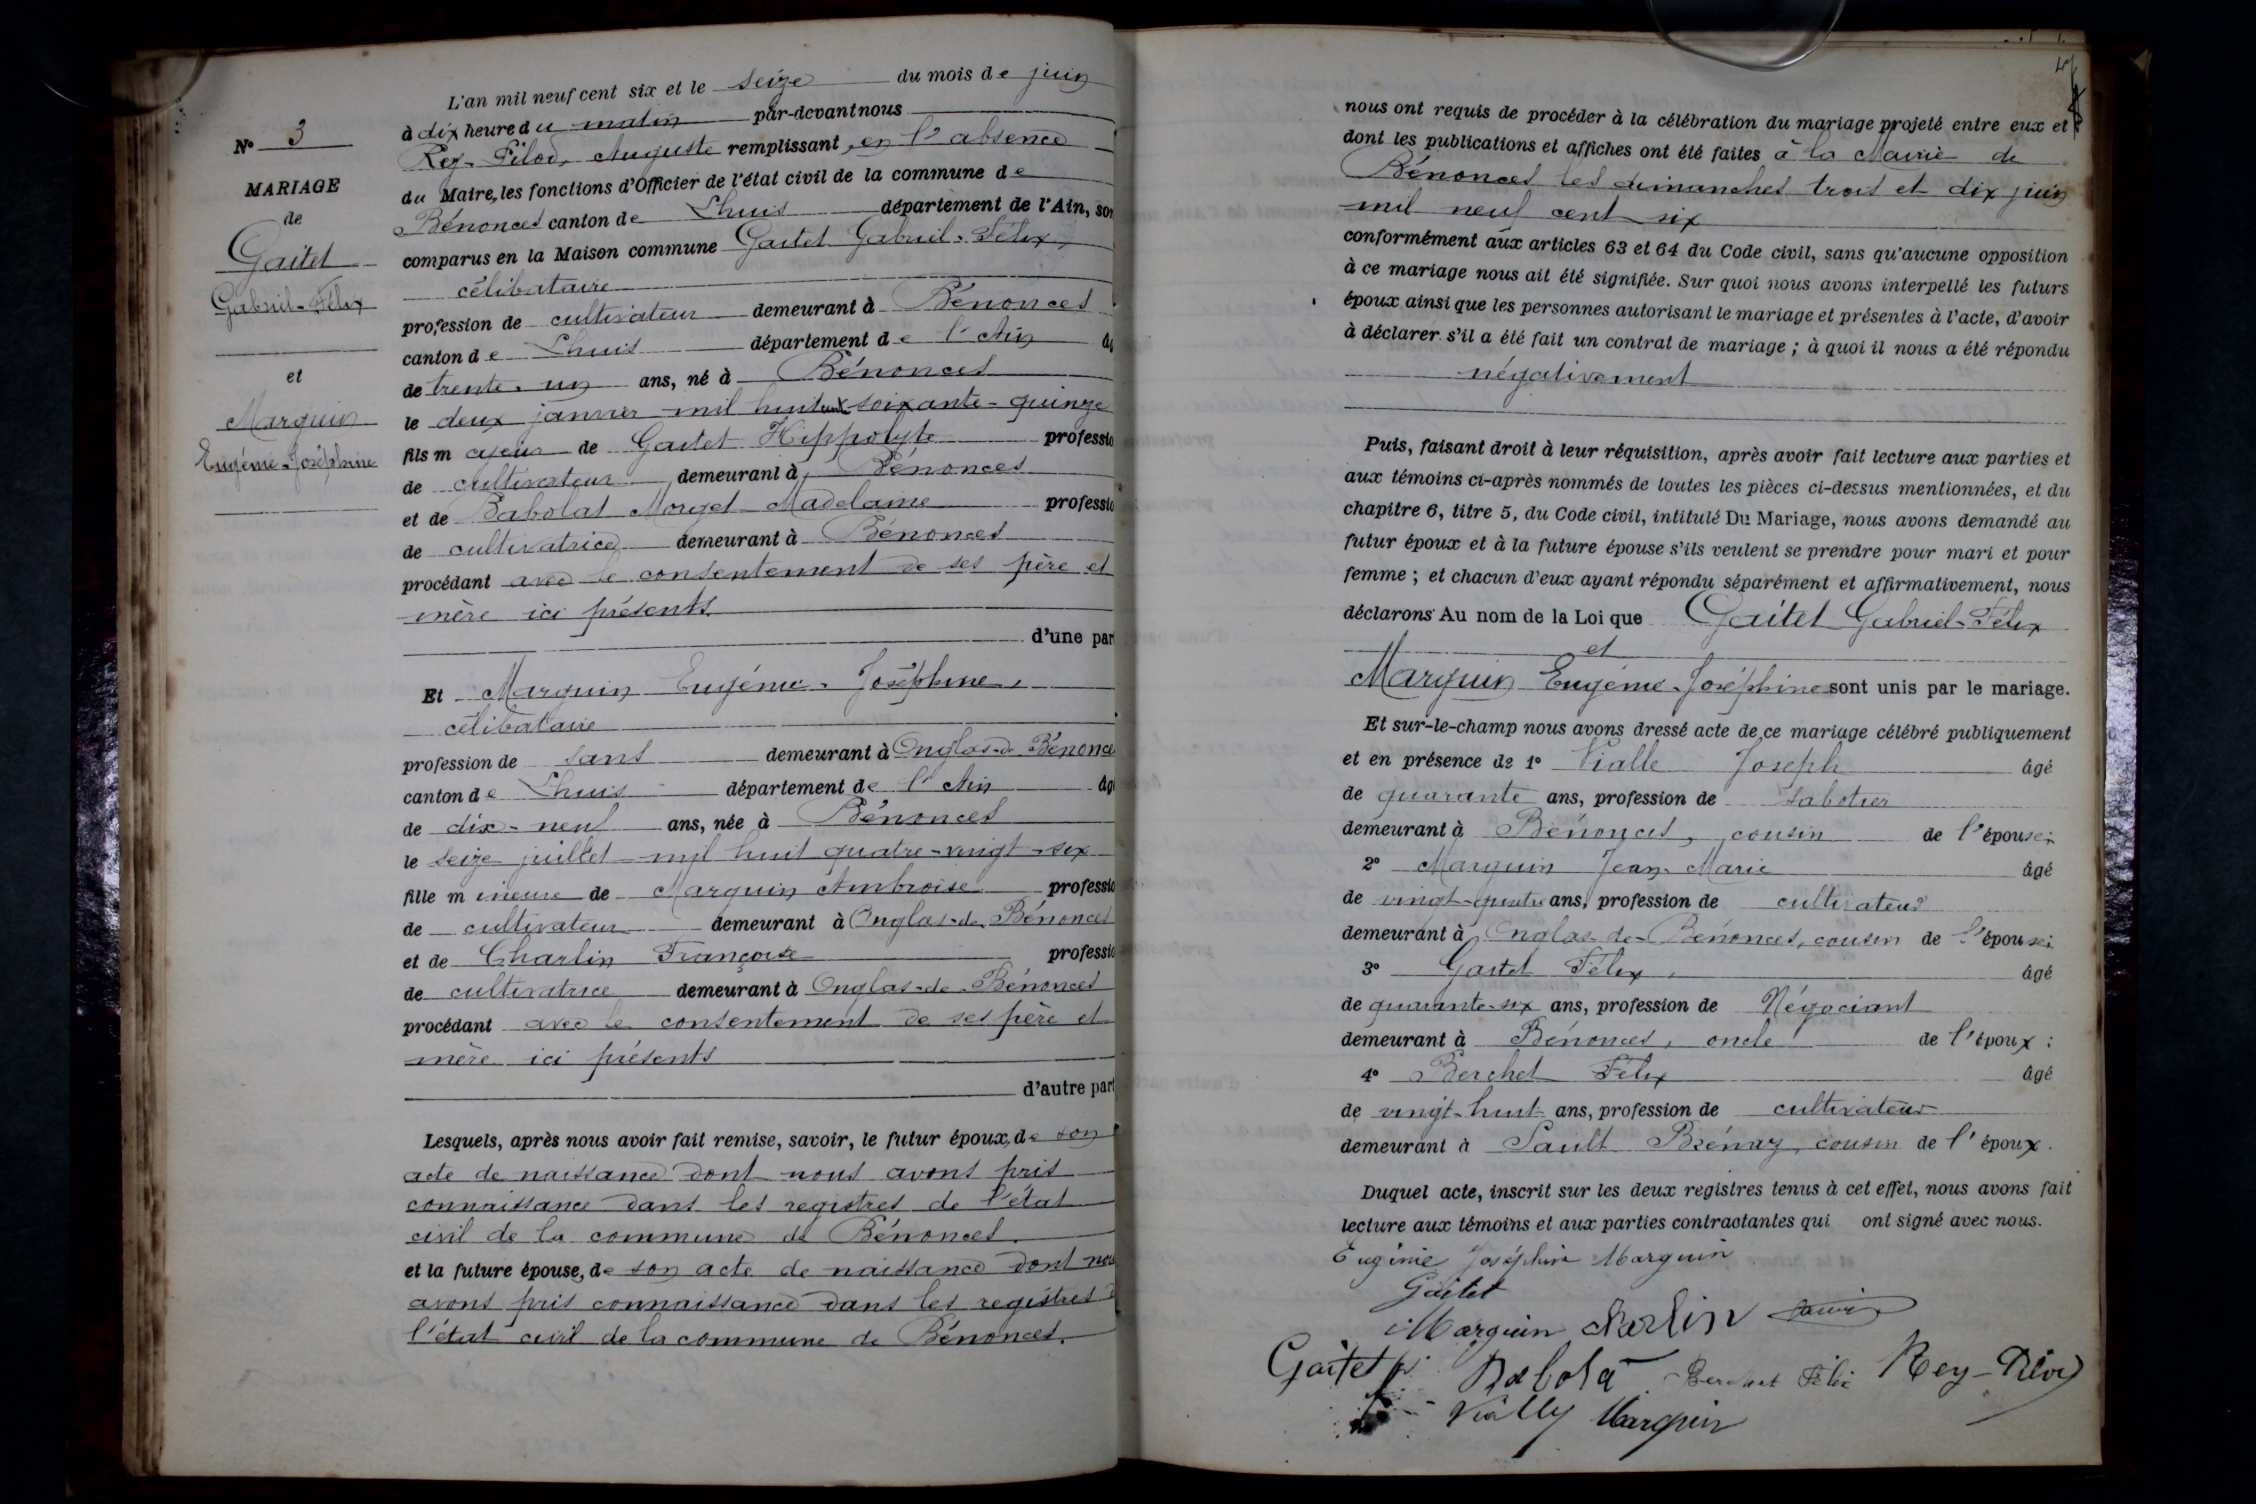 N° 3
MARIAGE
de
Gaitet
Gabriel-Félix
et
Marguin
Eugénie-Joséphine
L'an mil neuf cent six et le seize du mois de juin
à dix heure du matin par-devant nous
Rey-Pilod, Auguste remplissant, en l'absence
du Maire, les fonctions d'Officier de l'état civil de la commune de
Bénonces canton de Lhuis département de l'Ain, son
comparus en la Maison commune Gaitet Gabriel-Félix,
célibataire
profession de cultivateur demeurant à Bénonces
canton de Lhuis département de l'Ain âg
de trente-un ans, né à Bénonces
le deux janvier mil huit cent soixante-quinze
fils majeur de Gaitet Hippolyte professio
de cultivateur demeurant à Bénonces
et de Babolat Mouget Madelaine professio
de cultivatrice demeurant à Bénonces
procédant avec le consentement de ses père et
mère ici présents
d'une par
Et Marguin Eugénie-Joséphine,
célibataire
profession de sans demeurant à Onglas-de-Bénonce
canton de Lhuis département de l'Ain âg
de dix-neuf ans, née à Bénonces
le seize juillet mil huit quatre-vingt-six
fille mineure de Marguin Ambroise professio
de cultivateur demeurant à Onglas-de-Bénonces
et de Charlin Françoise professio
de cultivatrice demeurant à Onglas-de-Bénonces
procédant avec le consentement de ses père et
mère ici présents
d'autre part
Lesquels, après nous avoir fait remise, savoir, le futur époux, de son
acte de naissance dont nous avons pris
connaissance dans les registres de l'état
civil de la commune de Bénonces.
et la future épouse, de son acte de naissance dont nous
avons pris connaissance dans les registres d
l'état civil de la commune de Bénonces.
nous ont requis de procéder à la célébration du mariage projeté entre eux et
dont les publications et affiches ont été faites à la Mairie de
Bénonces les dimanches trois et dix juin
mil neuf cent six
conformément aux articles 63 et 64 du Code civil, sans qu'aucune opposition
à ce mariage nous ait été signifiée. Sur quoi nous avons interpellé les futurs
époux ainsi que les personnes autorisant le mariage et présentes à l'acte, d'avoir
à déclarer s'il a été fait un contrat de mariage ; à quoi il nous a été répondu
négativement
Puis, faisant droit à leur réquisition, après avoir fait lecture aux parties et
aux témoins ci-après nommés de toutes les pièces ci-dessus mentionnées, et du
chapitre 6, titre 5, du Code civil, intitulé Du Mariage, nous avons demandé au
futur époux et à la future épouse s'ils veulent se prendre pour mari et pour
femme ; et chacun d'eux ayant répondu séparément et affirmativement, nous
déclarons Au nom de la Loi que Gaitet Gabriel-Félix
et
Marguin Eugénie-Joséphine sont unis par le mariage.
Et sur-le-champ nous avons dressé acte de ce mariage célébré publiquement
et en présence de 1° Vialle Joseph âgé
de quarante ans, profession de sabotier
demeurant à Bénonces, cousin de l'épouse;
2° Marguin Jean-Marie âgé
de vingt-quatre ans, profession de cultivateur
demeurant à Onglas-de-Bénonces, cousin de l'épouse;
3° Gaitet Félix, âgé
de quarante-six ans, profession de Négociant
demeurant à Bénonces, oncle de l'époux ;
4° Berchet Félix âgé
de vingt-huit ans, profession de cultivateur
demeurant à Sault-Brénaz, cousin de l'époux.
Duquel acte, inscrit sur les deux registres tenus à cet effet, nous avons fait
lecture aux témoins et aux parties contractantes qui ont signé avec nous.
Eugénie Joséphine Marguin
Gaitet
Marguin charlin
Gaitet Babolat Berchet Félix Rey-Pilod
Vially Marguin